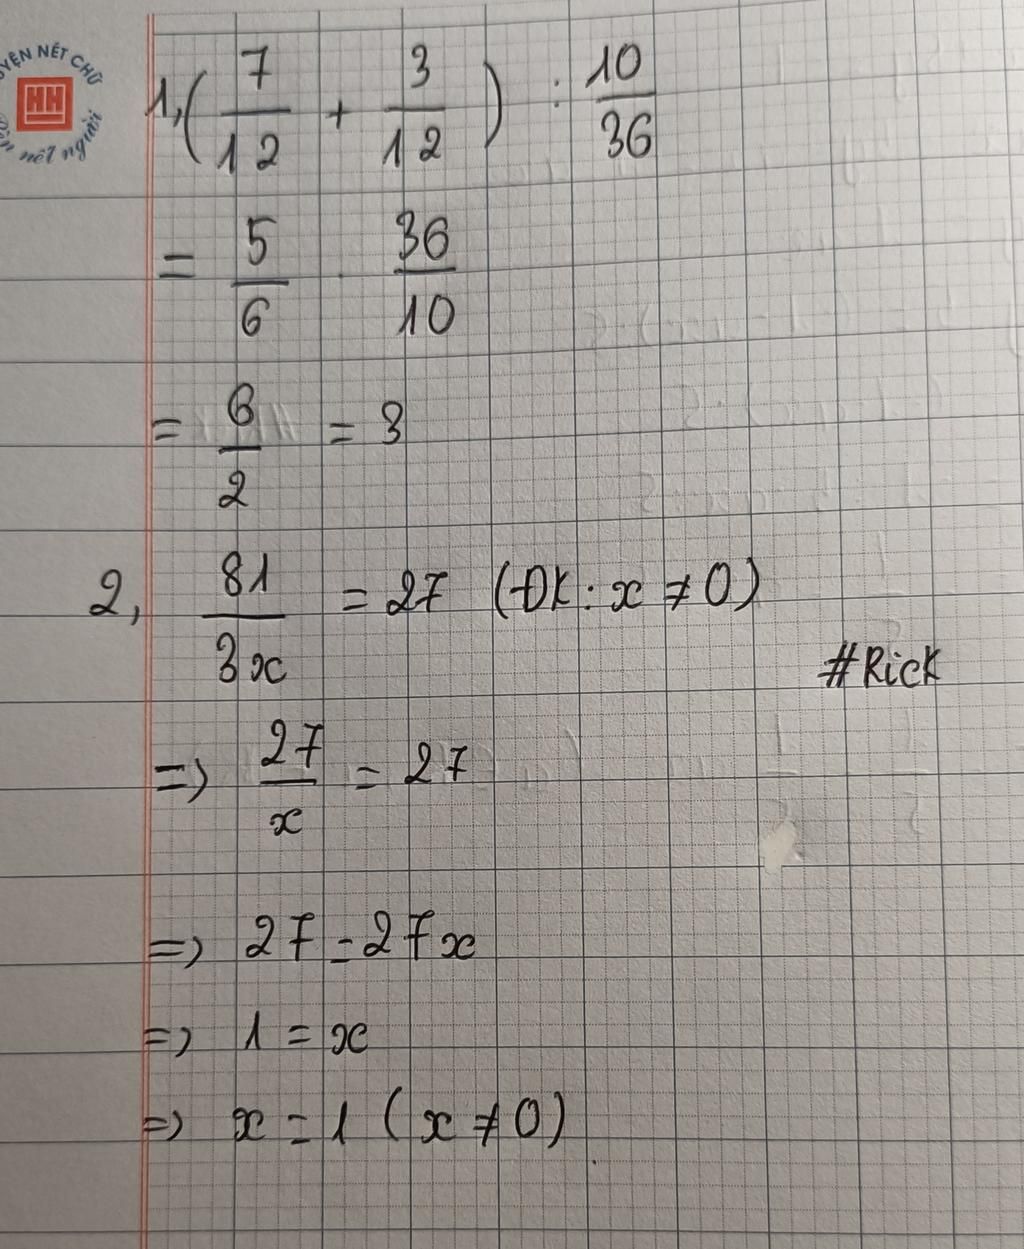 UYỆN NÉT CHỮ
HH
nết người
1, ( 7/12 + 3/12 ) : 10/36
= 5/6 . 36/10
= 6/2 = 3
2, 81/3x = 27 (ĐK : x ≠ 0)
#Rick
=> 27/x = 27
=> 27 = 27x
=> 1 = x
=> x = 1 ( x ≠ 0)